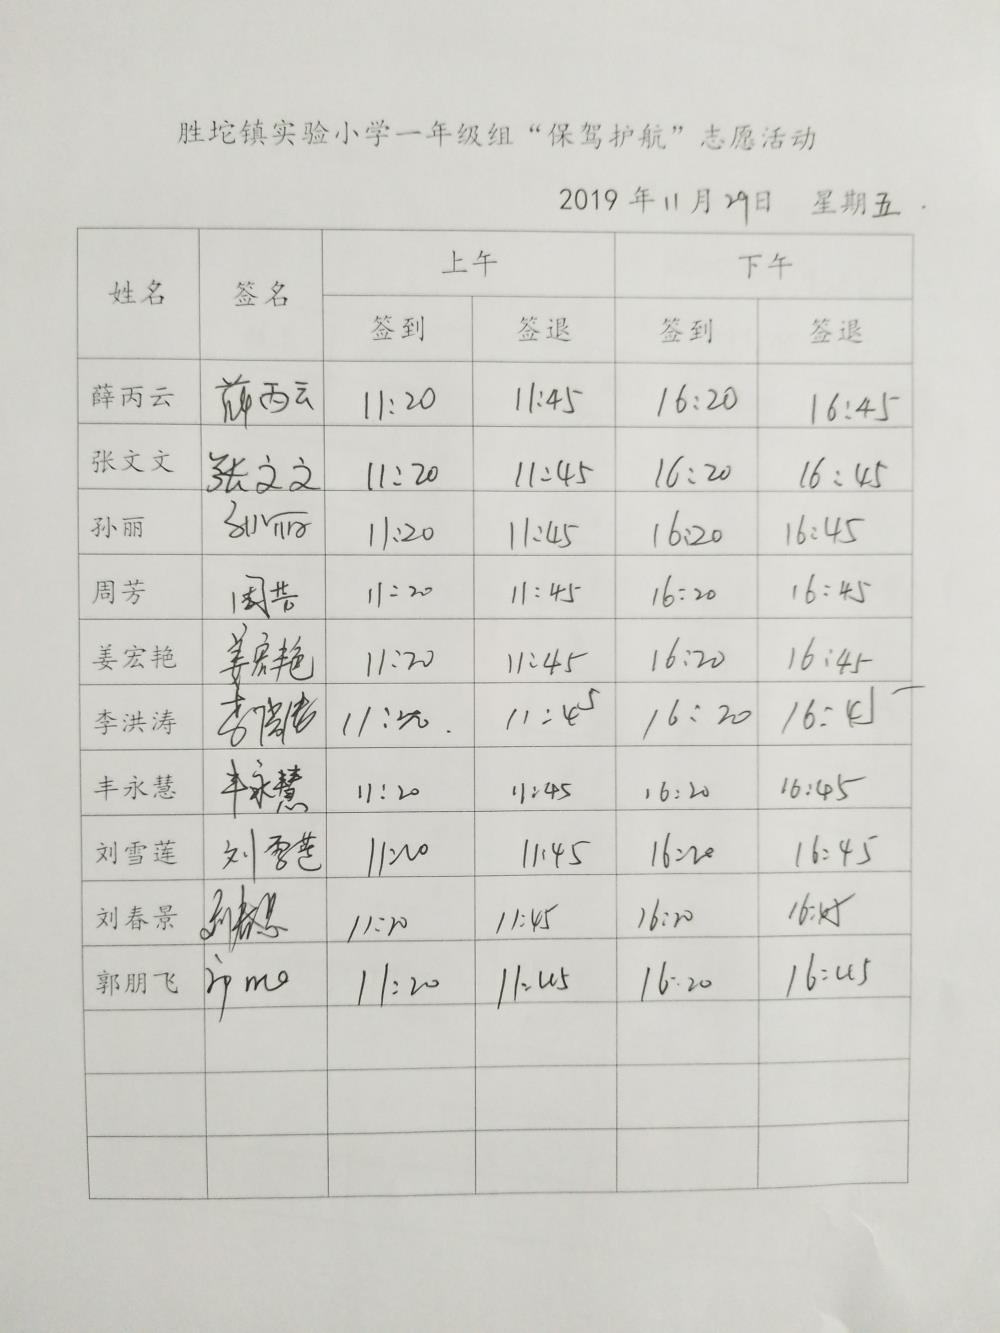 胜坨镇实验小学一年级组“保驾护航”志愿活动
2019年11月29日 星期五.
姓名 签名 上午 下午
签到 签退 签到 签退
薛丙云 薛丙云 11:20 11:45 16:20 16:45
张文文 张文文 11:20 11:45 16:20 16:45
孙丽 孙丽 11:20 11:45 16:20 16:45
周芳 周芸 11:20 11:45 16:20 16:45
姜宏艳 姜宏艳 11:20 11:45 16:20 16:45
李洪涛 李洪涛 11:20 11:45 16:20 16:45
丰永慧 丰永慧 11:20 11:45 16:20 16:45
刘雪莲 刘雪莲 11:20 11:45 16:20 16:45
刘春景 刘春景 11:20 11:45 16:20 16:45
郭朋飞 11:20 11:45 16:20 16:45